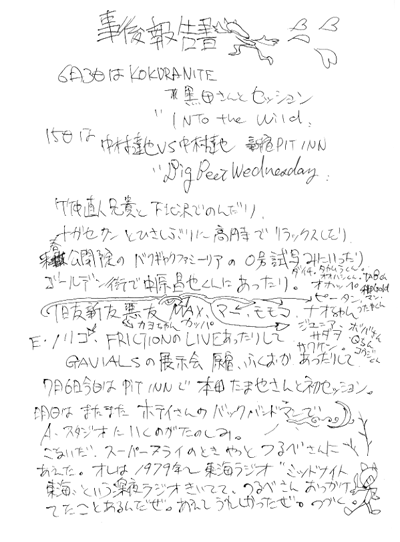 事後報告書
6月3日は KOKURANITE
黒田さんとセッション
"INTO the Wild.
15日は 中村達也VS中村達也 新宿PIT INN
"Big Beet Wednesday.
竹仲直人兄貴と下北沢でのんだり
ナガセクンとひさしぶりに高円寺でリラックスしたり
公開前の バクギャクファミーリアの0号試写みにいったり
ゴールデン街で中原昌也くんにあったり。
旧友新友悪友 MAX、マー、モモコ、ナオちゃん
カヨちゃん カッパ
ジュニアー
サダヲ
E・ノリゴ、FRICTIONのLIVEあったりして
GAVIALSの展示会 原宿、ふくおか あったりして
7月6日今日は PIT INNで 本田たまやさんと初セッション。
明日は またまた ホテイさんの バックバンドで
A・スタジオに いくのがたのしみ。
こないだ、スーパーアライのとき やっと つるべさんに
あえた。オレは 1979年〜 東海ラジオ "ミッドナイト
東海" という深夜ラジオ きいてて、つるべさん おっかけ
てたことあるんだぜ。あえて うれしかったぜ。つづく。